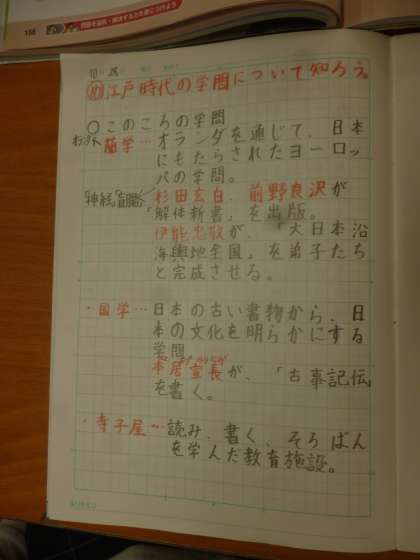 158
問題を追究・解決する力を身につけよう
10 28
め江戸時代の学問について知ろう。
○このころの学問
蘭学…オランダを通じて、日本
にもたらされたヨーロッ
パの学問。
「神経」「盲腸」
杉田玄白、前野良沢が
「解体新書」を出版。
伊能忠敬が、「大日本沿
海輿地全図」を弟子たち
と完成させる。
・国学…日本の古い書物から、日
本の文化を明らかにする
学問
もとおりのりなが
本居宣長が、「古事記伝」
を書く。
・寺子屋…読み、書く、そろばん
を学んだ教育施設。